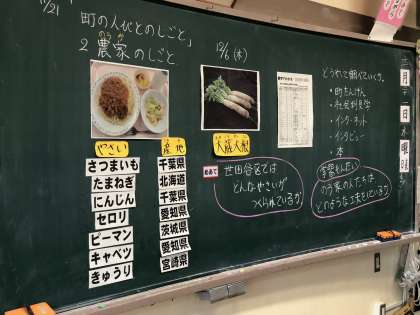 「町の人びとのしごと」
2 農家のしごと
のうか
やさい 産地
さつまいも 千葉県
たまねぎ 北海道
にんじん 千葉県
セロリ 愛知県
ピーマン 茨城県
キャベツ 愛知県
きゅうり 宮崎県
12/6(木)
大蔵大根
めあて
世田谷区では
どんなやさいが
つくられているか
どうやって調べていくか。
・町たんけん
・社会科見学
・インターネット
・インタビュー
・本
学習もんだい
のう家の人たちは
どのような工夫をしているか